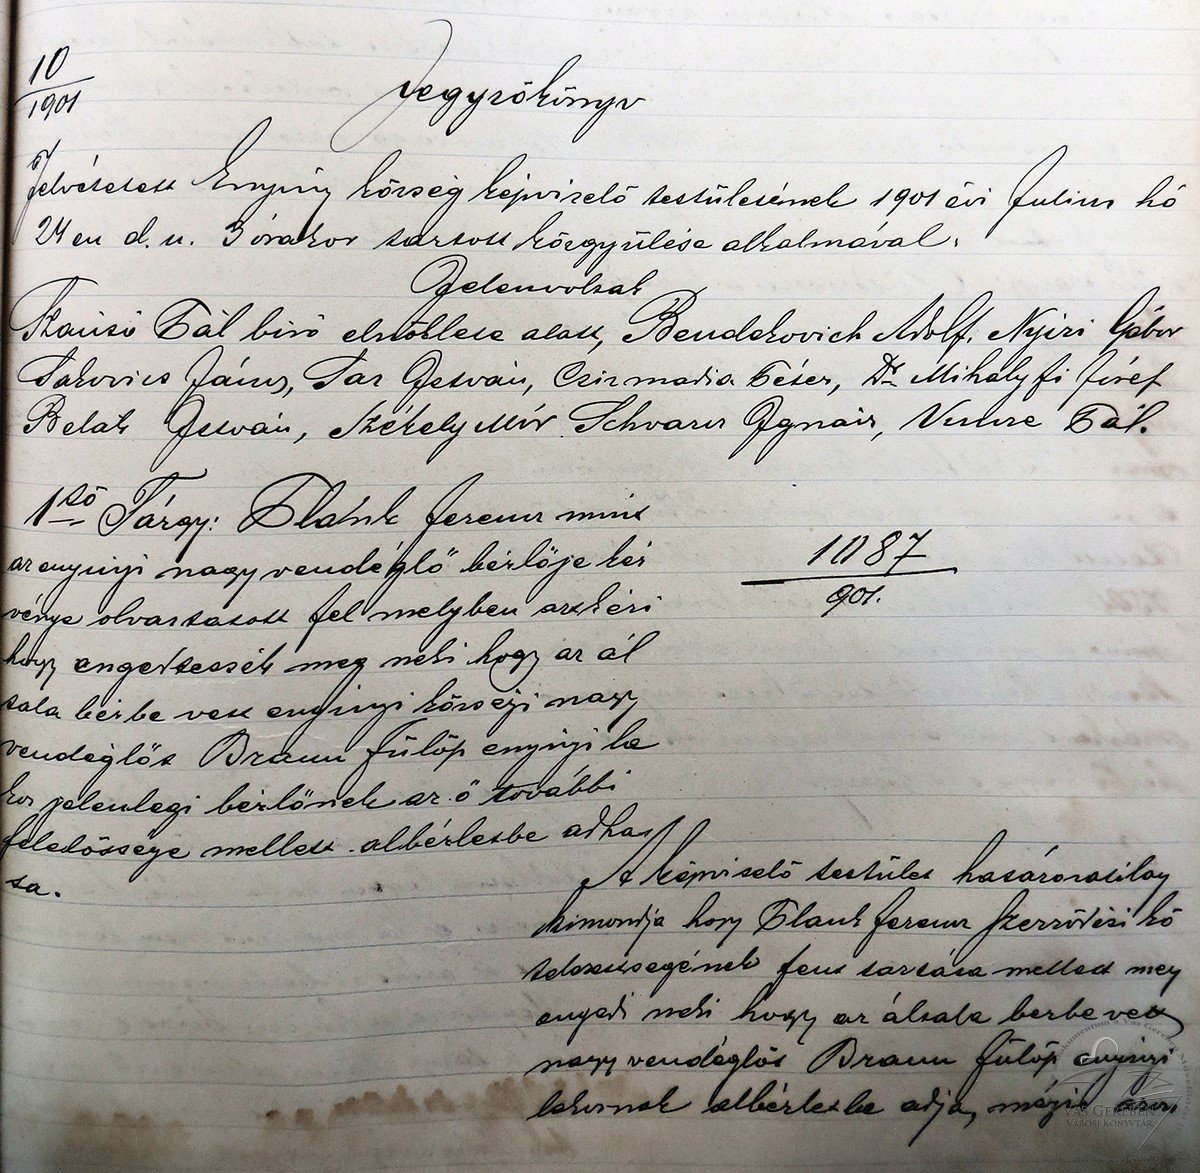 10
1901
Jegyzőkönyv
Felvétetett Enying község képviselő testületének 1901 évi Julius hó
24 en d. u. 3 órakor tartott közgyülése alkalmával.
Jelenvoltak
Pál biró elnöklete alatt, Bendekovich Adolf, Nyiri Gábor
Takovics János, Tar István, Czizmadia Péter, Dr Mihályfi József
Belák István, Székely Mór Schvarz Ignátz, Vincze Pál.
1ső Tárgy: Plánk Ferencz mint
az enyingi nagy vendéglő bérlője kér
vénye olvastatott fel melyben azt kéri
hogy engedtessék meg neki hogy az ál
tala bérbe vett enyingi községi nagy
vendéglőt Braun Fülöp enyingi la
kos jelenlegi bérlőnek az ő további
felelőssége mellett albérletbe adhas
sa.
1087
901.
A képviselő testület határozatilag
kimondja hogy Plank Ferencz szerződési kö
telezettségének fent tartása mellett meg
engedi neki hogy az általa bérbe vett
nagy vendéglőt Braun Fülöp enyingi
lakosnak albérletbe adja, mégis azon
VAS GEREBEN
VÁROSI KÖNYVTÁR